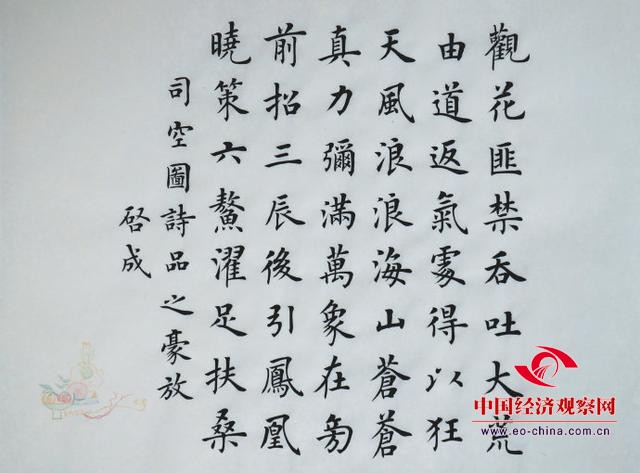 觀花匪禁吞吐大荒
由道返氣處得以狂
天風浪浪海山蒼蒼
真力彌滿萬象在旁
前招三辰後引鳳凰
曉策六鰲濯足扶桑
司空圖詩品之豪放
啓成
中国经济观察网
www.eo-china.com.cn